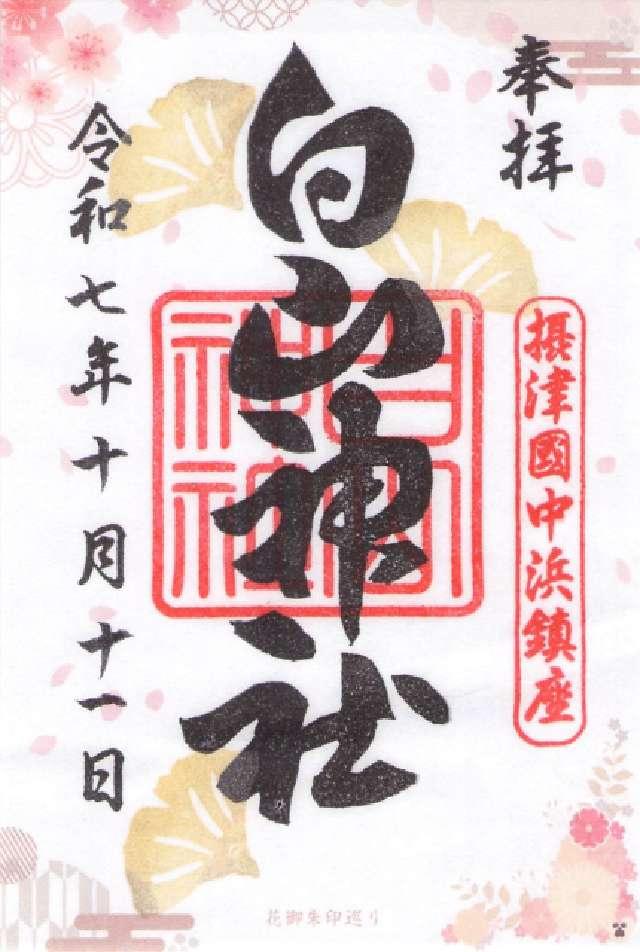 奉拝
摂津國中浜鎮座
白山神社
白山
神社
令和七年十月十一日
花御朱印巡り